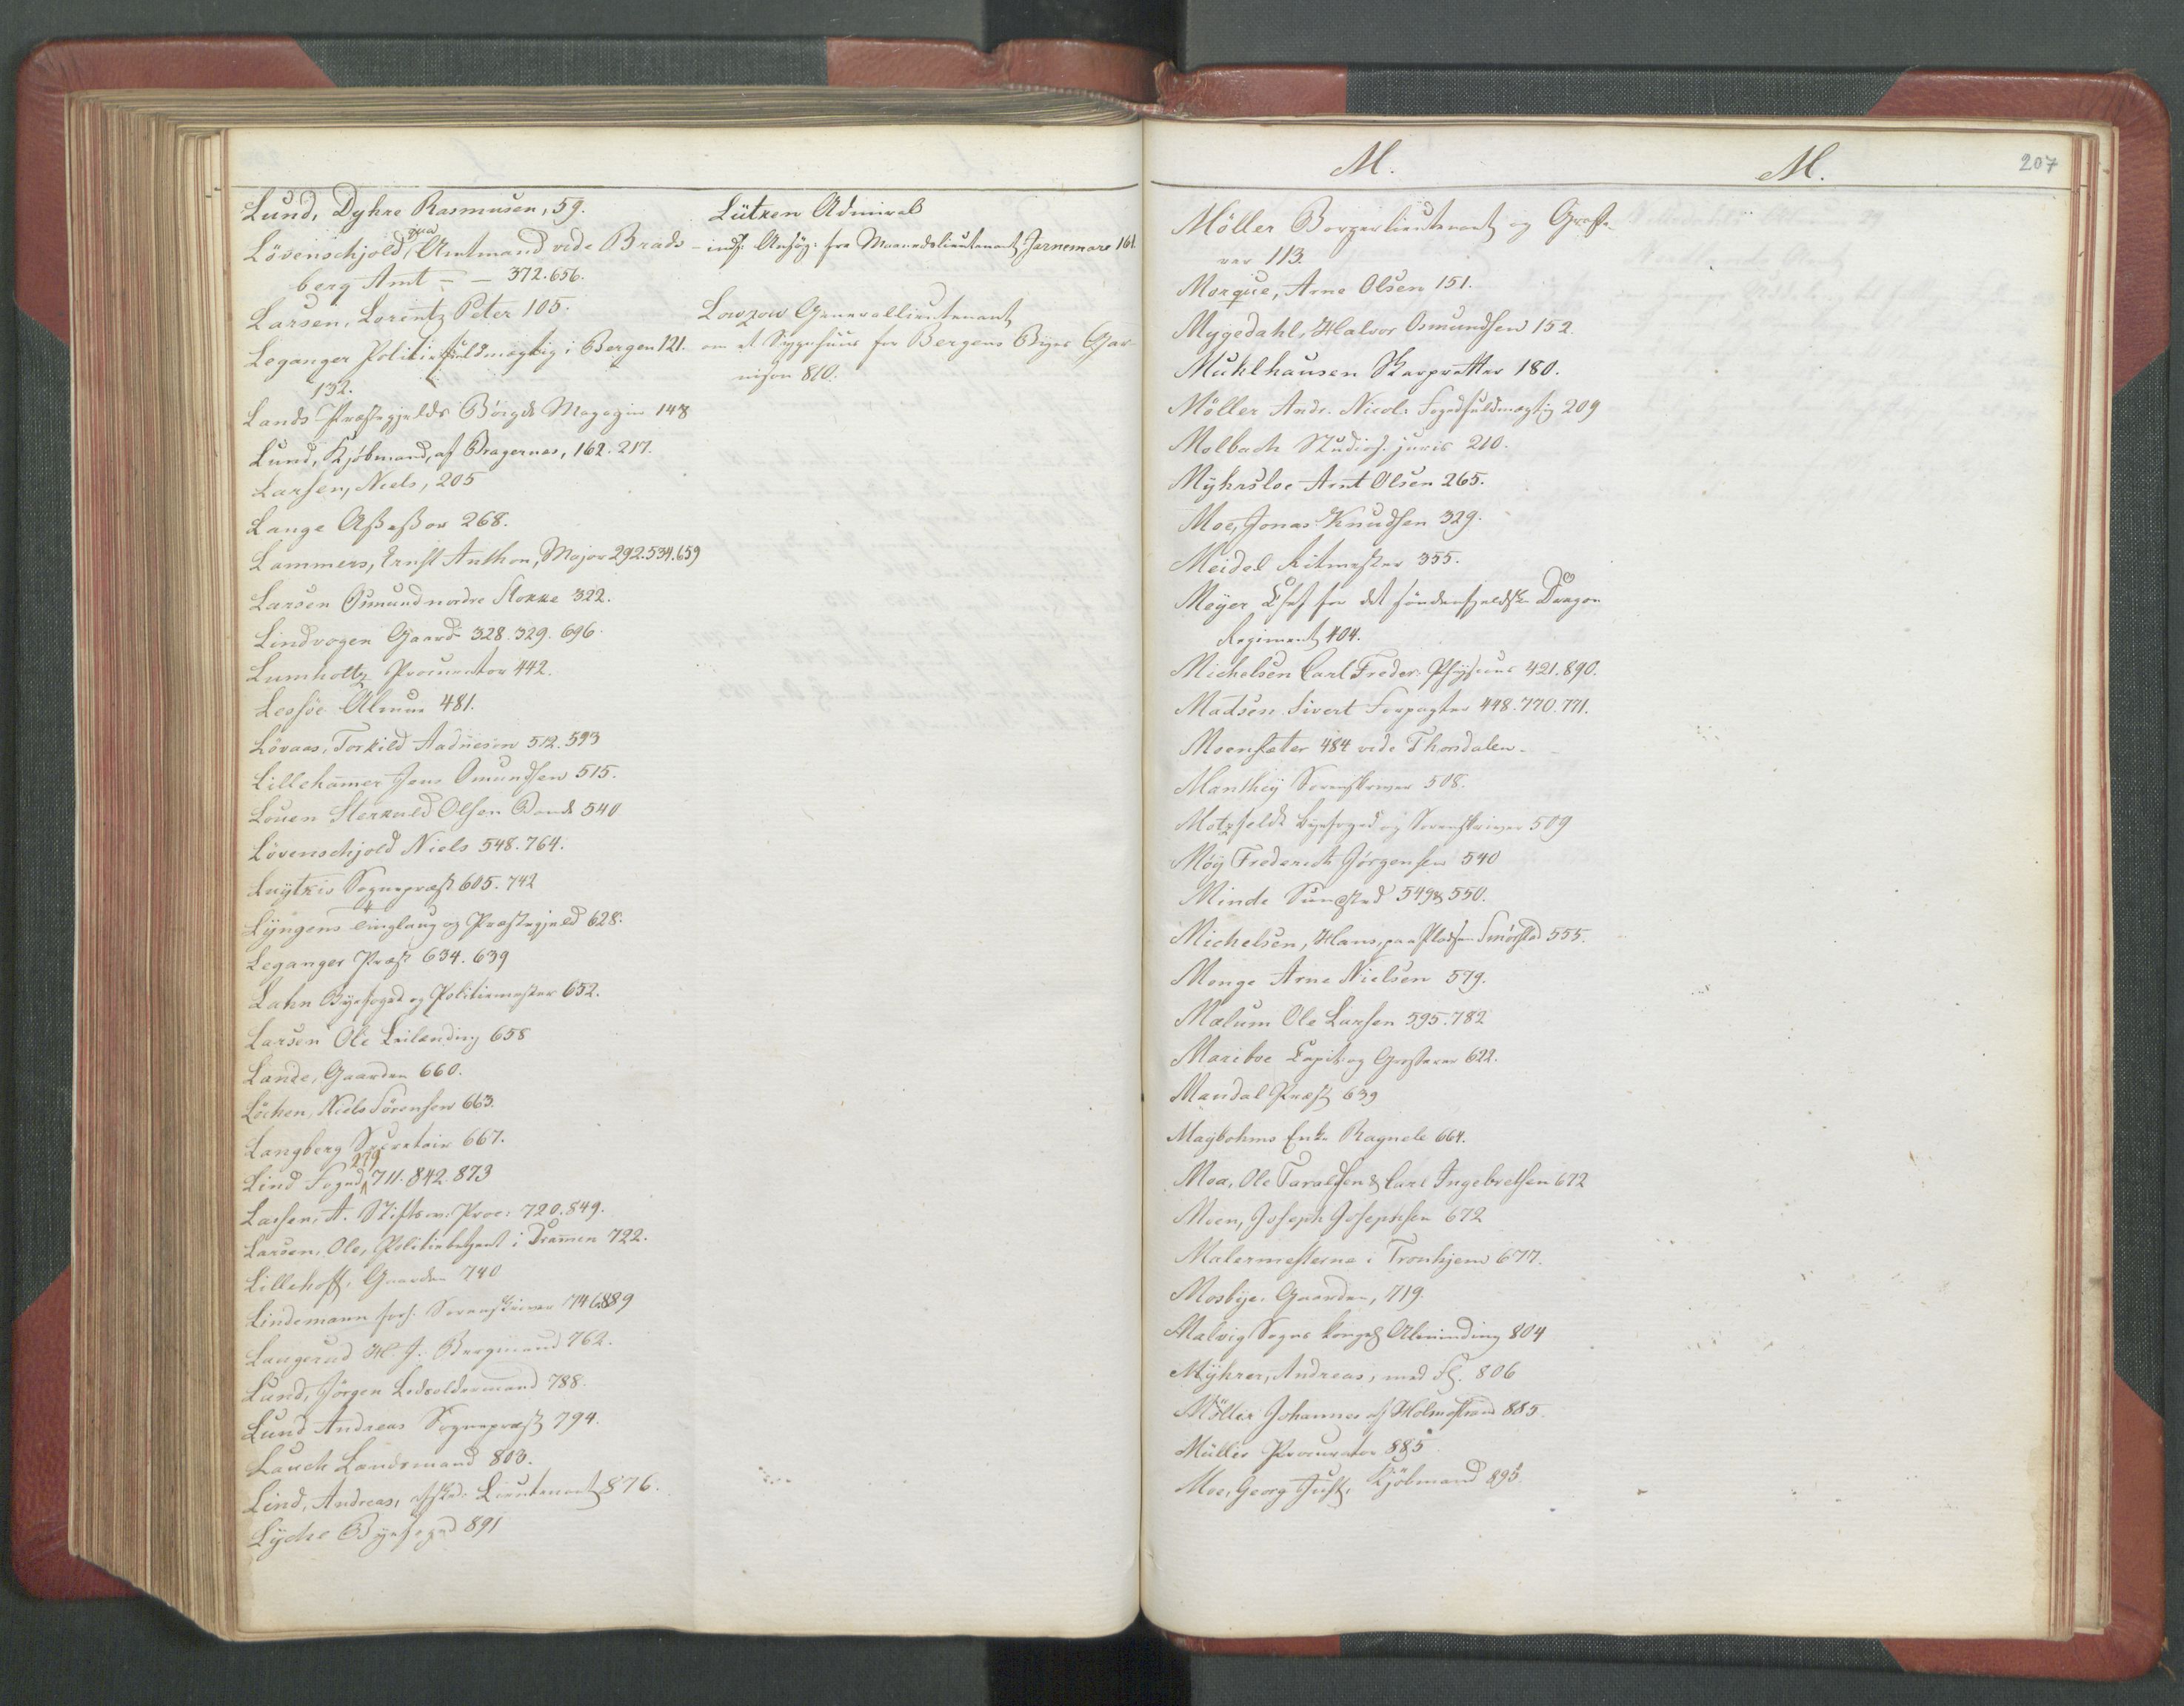 Lund, Dyhre Rasmusen, 59.
Lövenschjold, qua Amtmand vide Brads-
berg Amt — — 372.656.
Larsen, Lorentz Peter 105.
Leganger Politiefuldmægtig i Bergen 121.
132.
Lands Præstegjelds Bøigde Magazin 148
Lund, Kjöbmand, af Bragernes, 162.217.
Larsen, Niels, 205
Lange Assessor 268.
Lammers, Ernst Anthon, Major 292.534.659
Larsen Osmund nordre Slokke 322.
Lindvogen Gaard 328.329.696.
Lumholtz Procurator 442.
Lessöe 481.
Lövaas, Torkild Aadnesen 512.593
Lillehamer Jens Omundsen 515.
Louen Sterkuld Olsen Bonde 540
Lövenschjold Niels 548.764.
Luytkis Sognepræst 605.742
Lyngens Tinglaug og Præstegjeld 628.
Leganger Præst 634.639
Lahn Byefoged og Politiemester 652.
Larsen Ole Leilænding 658
Lande, Gaarden 660.
Löchen, Niels Sörensen 663.
Langberg Secretair 667.
Lind Foged 279 711.842.873
Lassen, A. Stiftsov. Proc: 720.849.
Larsen, Ole, Politiebetjent i Dramen 722.
Lillehoff, Gaarden 740
Lindemann Sorenskriver 746.889
Laugerud H. J. Bergmand 762.
Lund, Jörgen Ledsoldermand 788.
Lund Andreas Sognepræst 794.
Lauch Landsmand 803.
Lind, Andreas, afsked: Lieutenant 876.
Lyche Byefoged 891
Lützen Admiral
- inds: Ansög: fra Maanedslieutenant Jarnemare 161.
Lowzow Generallieutenant
om et Sygehuus for Bergens Byes Gar-
nison 810.
M. M. 207
Möller Borgerlieutenant og Grosse-
rer 113.
Morque, Arne Olsen 151.
Mygedahl, Halvor Osmundsen 152.
Mühlhausen Skarpretter 180.
Möller Andr. Nicol: Fogedfuldmægtig 209
Molbach Studios. juris 210.
Myhrsloe Arnt Olsen 265.
Moe, Jonas Knudsen 329.
Meidel Ritmester 355.
Meyer Chef for det söndenfjeldske Dragon
Regiment 404.
Michelsen Carl Freder. Physicus 421.890.
Madsen Sivert Forpagter 448.770.771.
Moensæter 484 vide Thorsdalen
Manthey Sorenskriver 508.
Motzfeldt Byefoged og Sorenskriver 509
Möy Frederich Jörgensen 540
Minde 549 & 550.
Michelsen, Hans, paa Pladsen Smörstad 555.
Monge Arne Nielsen 579.
Mælum Ole Larsen 595.782
Mariboe Capit. og Grosserer 622.
Mandal Præst 639
Maybohms Enke Ragnele 664.
Moa, Ole Taralsen & Carl Ingebretsen 672
Moen, Joseph Josephsen 672
Malermesterne i Tronhjem 677.
Mosbye, Gaarden, 719.
Malvig Sogns kongel: Alminding 804
Myhrer, Andreas, med Fl. 806
Möller Johannes af Holmestrand 885.
Müller Procurator 885
Moe, Georg Just, Kjöbmand 895.